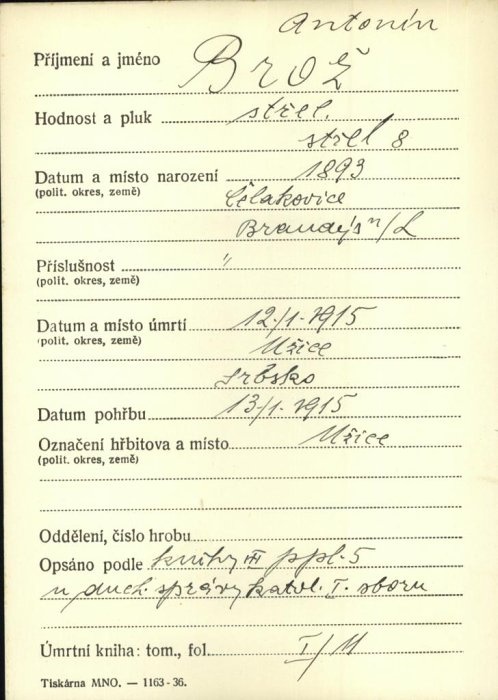 Antonín
Příjmení a jméno Brož
Hodnost a pluk střel.
střel 8
Datum a místo narození 1893
(polit. okres, země) Čelakovice
Brandýs n/L
Příslušnost "
(polit. okres, země)
Datum a místo úmrtí 12./1. 1915
(polit. okres, země) Užice
Srbsko
Datum pohřbu 13/1. 1915
Označení hřbitova a místo Užice
(polit. okres, země)
Oddělení, číslo hrobu
Opsáno podle knihy III ppl. 5
u duch. správy katol. I. sboru
Úmrtní kniha: tom., fol. I/11
Tiskárna MNO. — 1163-36.